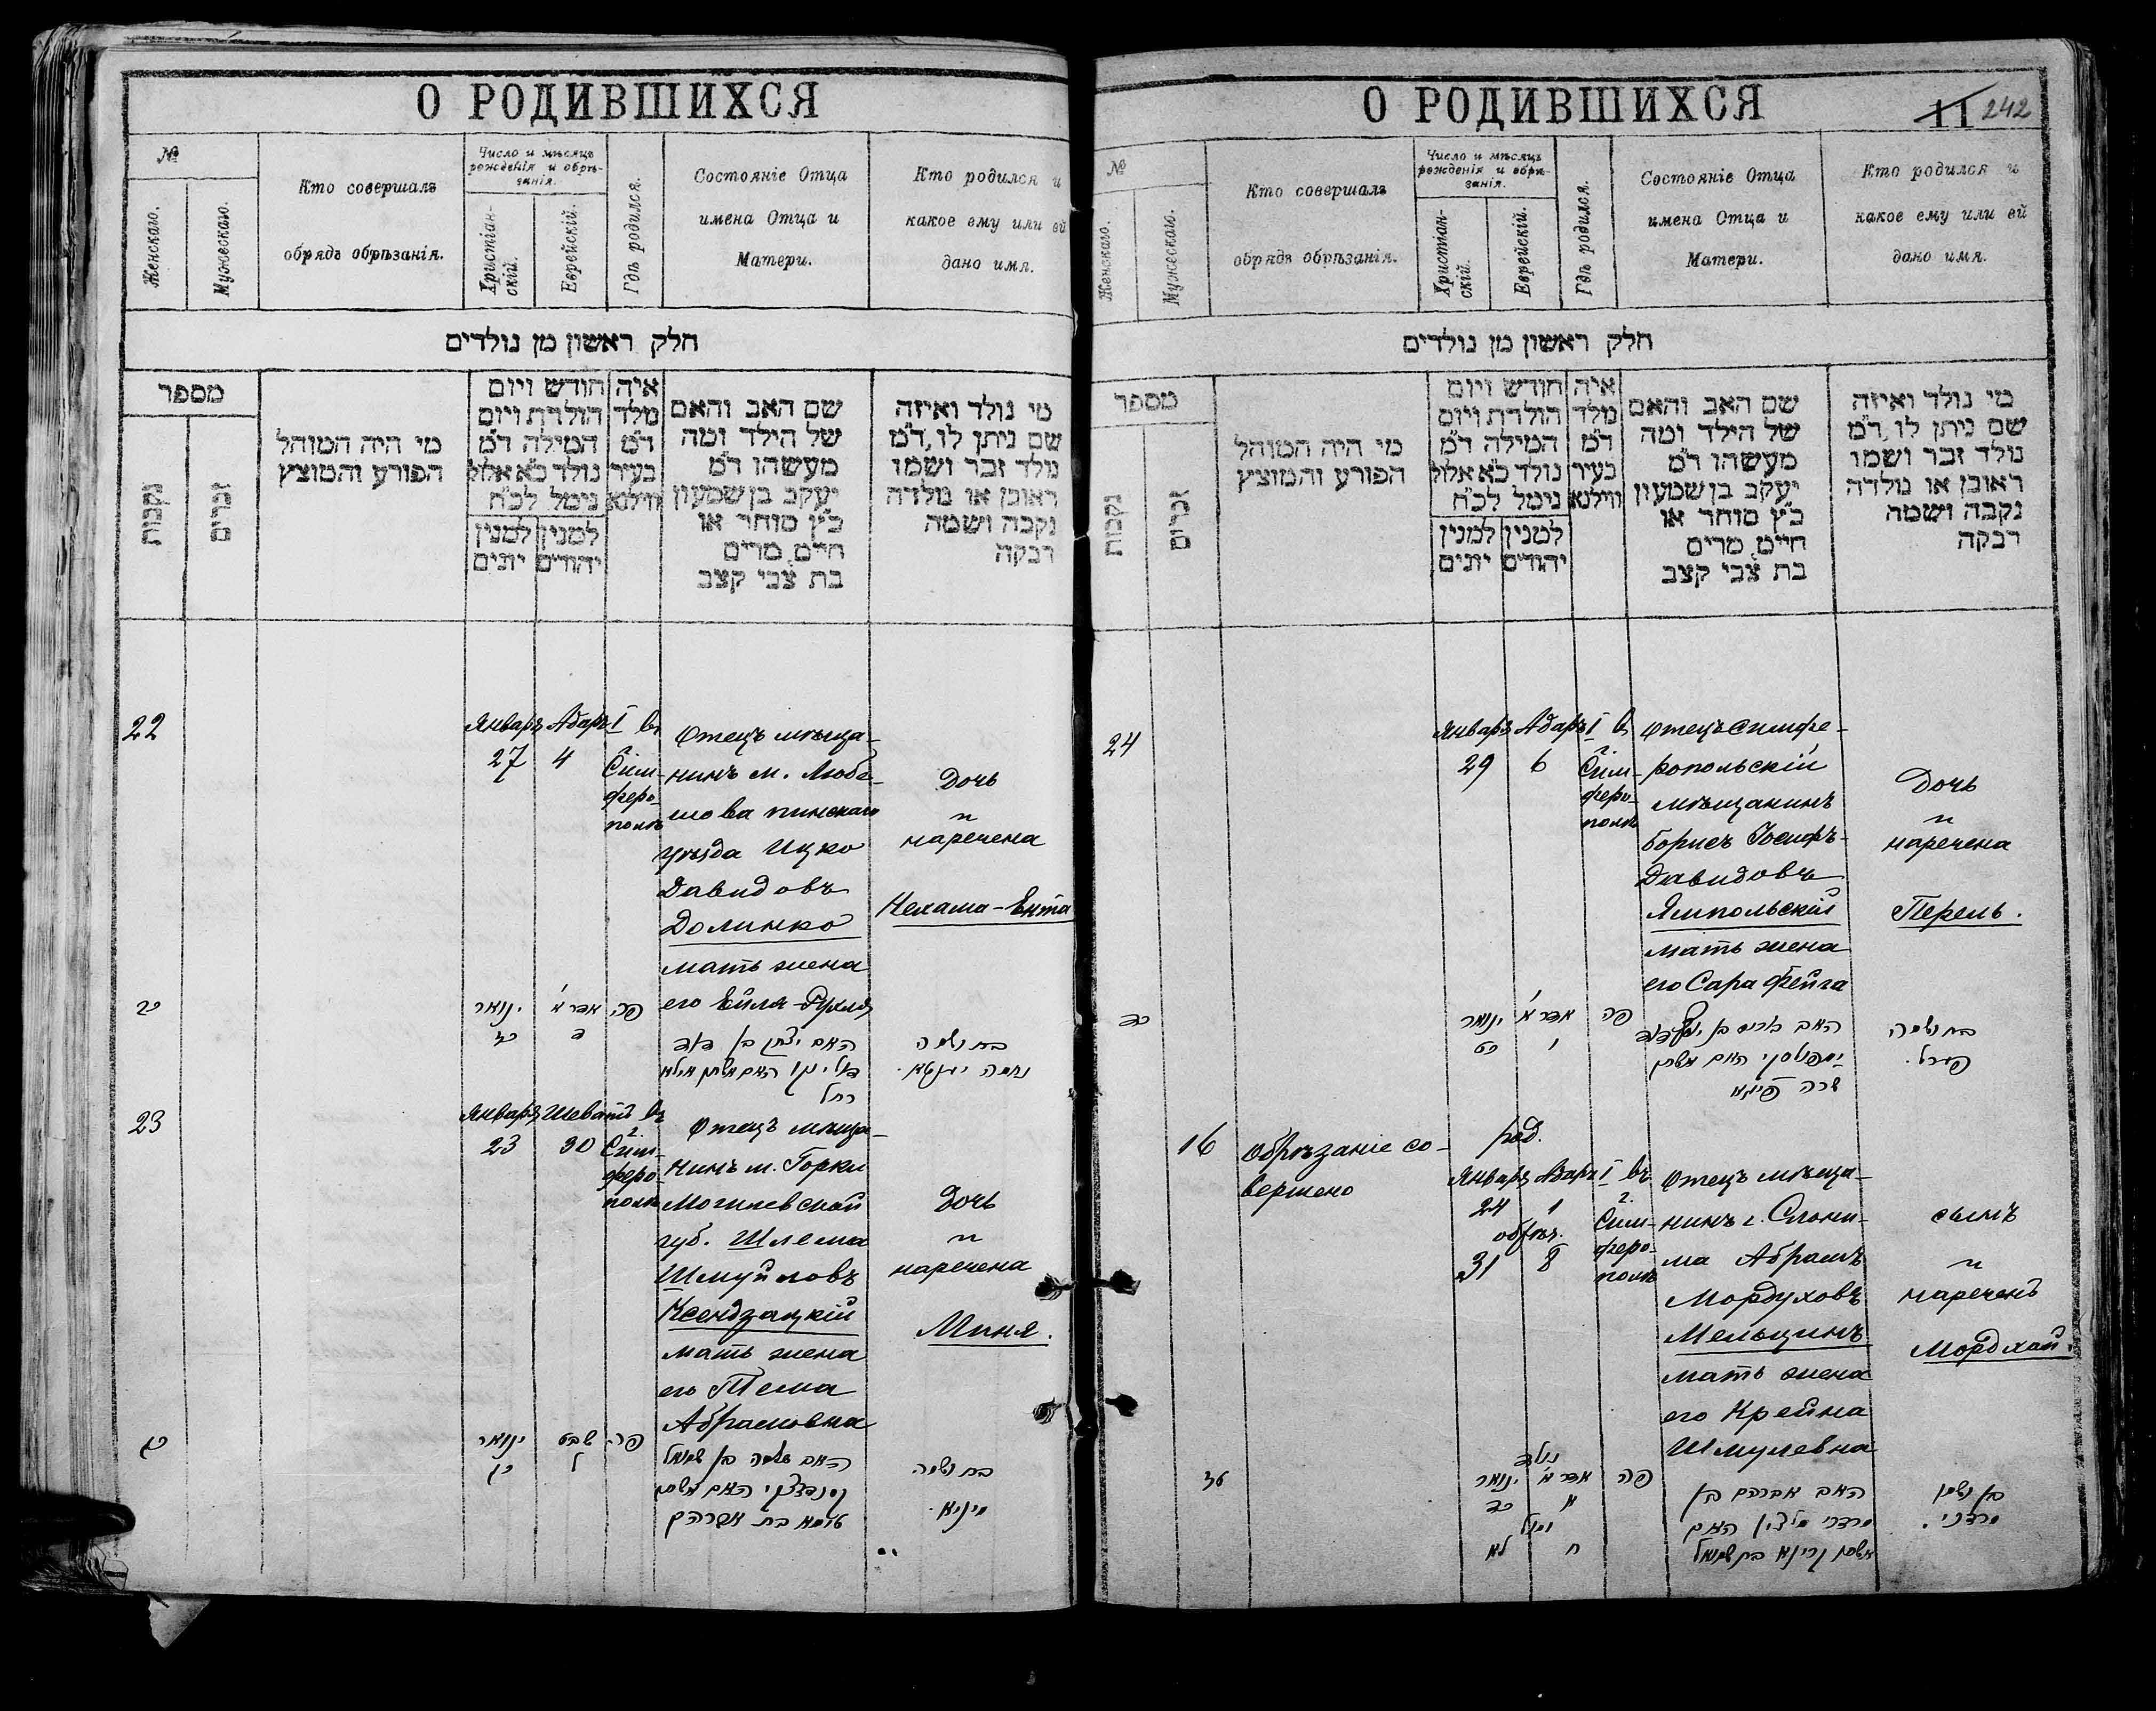 О РОДИВШИХСЯ
№
Женскаго.
Мужескаго.
Кто совершалъ
обрядъ обрѣзанія.
Число и мѣсяцъ
рожденія и обрѣ-
занія.
Христіан-
скій.
Еврейскій.
Гдѣ родился.
Состояніе Отца
имена Отца и
Матери.
Кто родился и
какое ему или ей
дано имя.
חלק ראשון מן נולדים
מספר
נקבות
זכרים
מי היה המוהל
הפורע והמוצץ
חודש ויום
הולדת ויום
המילה ד״מ
נולד כ״א אלול
נימל לכ״ח
למנין למנין
יהודים יונים
איה
מלד
ד״מ
בעיר
ווילנא
שם האב והאם
של הילד ומה
מעשהו ד״מ
יעקב בן שמעון
כ״ץ סוחר או
חיים מרים
בת צבי קצב
מי נולד ואיזה
שם ניתן לו ד״מ
נולד זכר ושמו
ראובן או נולדה
נקבה ושמה
רבקה
22
Январь Адаръ I
27 4
въ
г.
Сим-
феро-
полѣ
Отецъ мѣща-
нинъ м. Любе-
шова пинскаго
уѣзда Ицко
Давидовъ
Долинко
мать жена
его Бейля-Рухля
Дочь
и
наречена
Нехама-Ента
ינואר
כז
אדר א׳
ד
פה
האב יצחק בן דוד
דאלינקו האם אשתו ביילא
רחל
בת ושמה
נחמה יענטא.
23
Январь Шеватъ
23 30
въ
г.
Сим-
феро-
полѣ
Отецъ мѣща-
нинъ м. Горки
Могилевской
губ. Шлема
Шмуйловъ
Ксендзацкій
мать жена
его Тема
Абрамовна
Дочь
и
наречена
Миня.
ינואר
כג
שבט
ל
פה
האב שלמה בן שמואל
האם אשתו
טעמא בת אברהם
בת ושמה
מיניא.
О РОДИВШИХСЯ
11 242
№
Женскаго.
Мужескаго.
Кто совершалъ
обрядъ обрѣзанія.
Число и мѣсяцъ
рожденія и обрѣ-
занія.
Христіан-
скій.
Еврейскій.
Гдѣ родился.
Состояніе Отца
имена Отца и
Матери.
Кто родился и
какое ему или ей
дано имя.
חלק ראשון מן נולדים
מספר
נקבות
זכרים
מי היה המוהל
הפורע והמוצץ
חודש ויום
הולדת ויום
המילה ד״מ
נולד כ״א אלול
נימל לכ״ח
למנין למנין
יהודים יונים
איה
מלד
ד״מ
בעיר
ווילנא
שם האב והאם
של הילד ומה
מעשהו ד״מ
יעקב בן שמעון
כ״ץ סוחר או
חיים מרים
בת צבי קצב
מי נולד ואיזה
שם ניתן לו ד״מ
נולד זכר ושמו
ראובן או נולדה
נקבה ושמה
רבקה
24
Январь Адаръ I
29 6
въ
г.
Сим-
феро-
полѣ
Отецъ симфе-
ропольскій
мѣщанинъ
Борисъ Іосифъ-
Давидовъ
Ямпольскій
мать жена
его Сара Фейга
Дочь
и
наречена
Перель.
כד
ינואר
כט
אדר א׳
ו
פה
האב בוריס בן יוסף דוד
יאמפולסקי האם אשתו
שרה פייגא
בת ושמה
פערל.
16
обрѣзаніе со-
вершено
род.
Январь Адаръ I
24 1
обрѣз.
31 8
въ
г.
Сим-
феро-
полѣ
Отецъ мѣща-
нинъ г. Слони-
ма Абрамъ
Мордуховъ
Мельцинъ
мать жена
его Крейна
Шмулевна
сынъ
и
нареченъ
Мордхай.
נולד
ינואר
כד
אדר א׳
א
נימול
לא
ח
פה
האב אברהם בן
מרדכי מילצין האם
אשתו קריינא בת שמואל
בן ושמו
מרדכי.